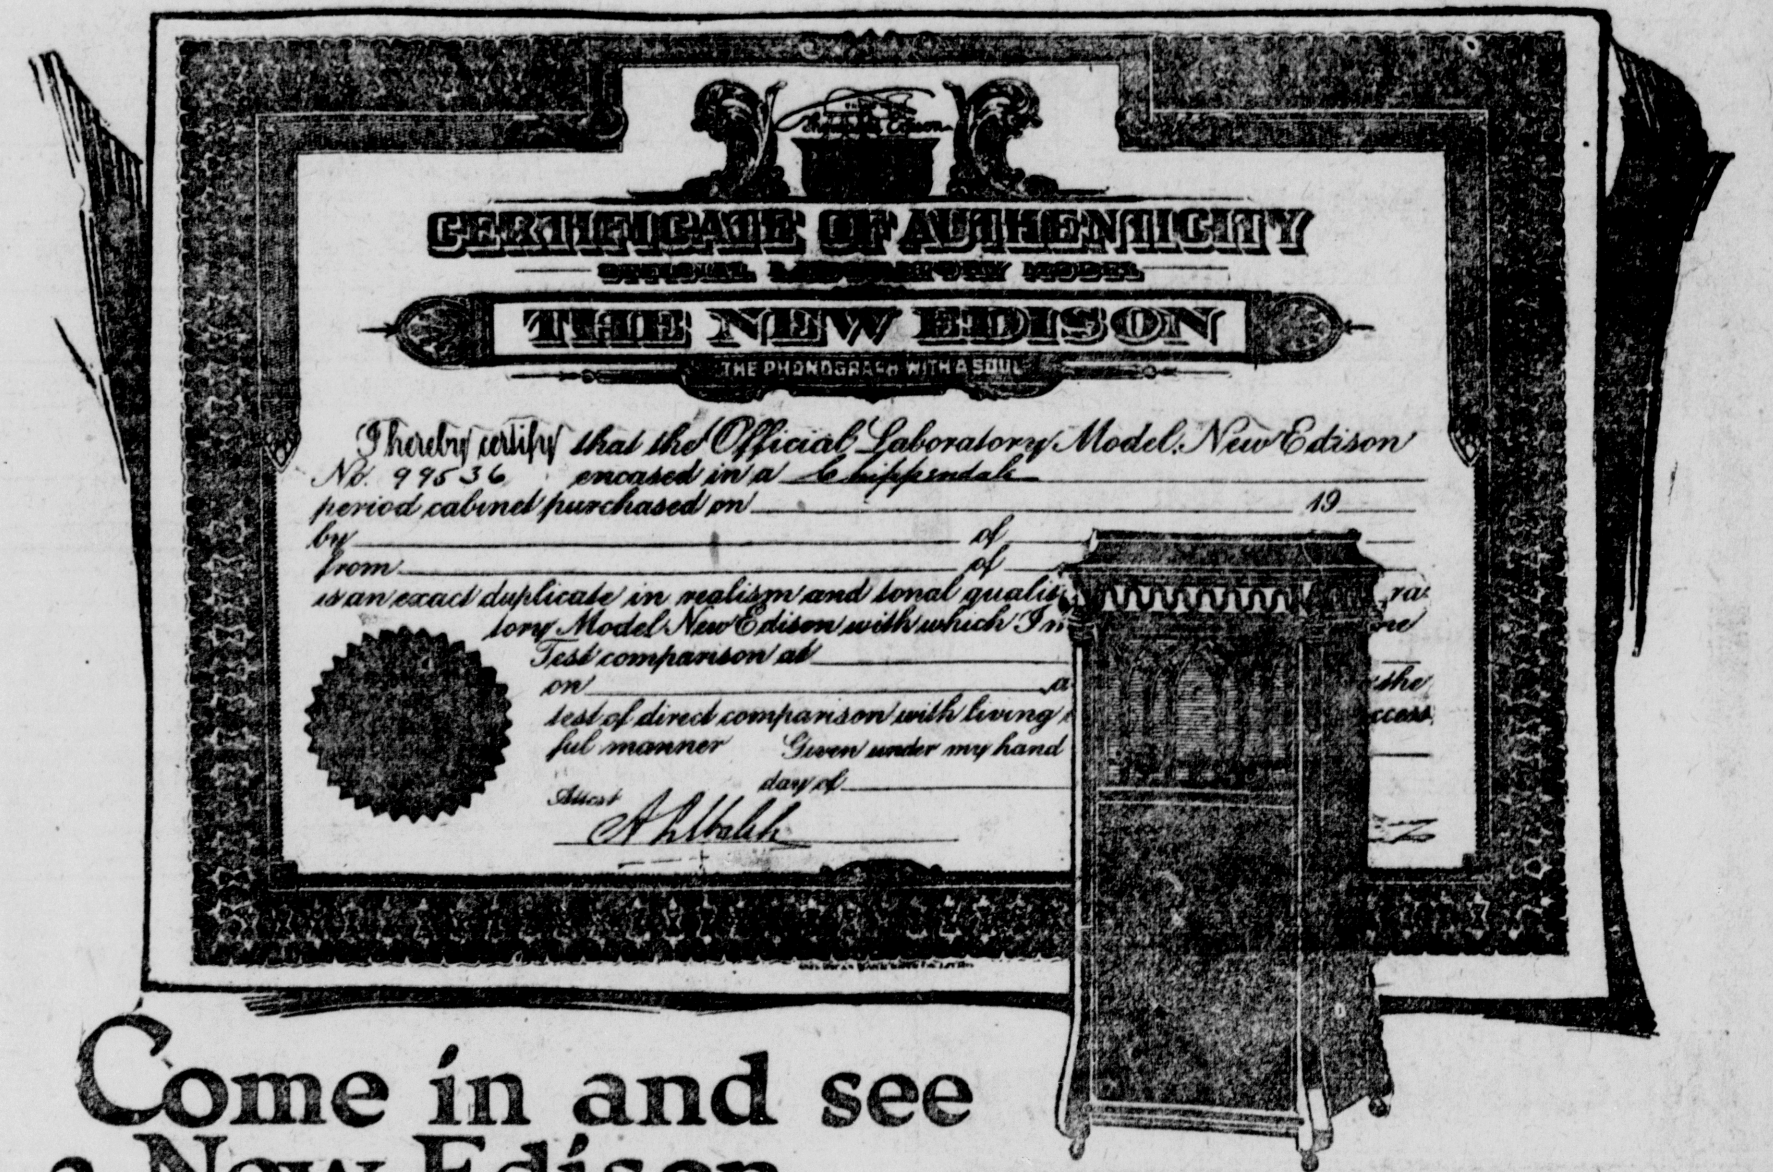 Thomas A Edison
CERTIFICATE OF AUTHENTICITY
OFFICIAL LABORATORY MODEL
THE NEW EDISON
THE PHONOGRAPH WITH A SOUL
I hereby certify that the Official Laboratory Model New Edison
No. 99536 encased in a Chippendale
period cabinet purchased on 19
by of
from of
is an exact duplicate in realism and tonal quali ra
tory Model New Edison with which I
Test comparison at
on a the
test of direct comparison with living ccess
ful manner Given under my hand
day of
Attest
Come in and see
a New Edison